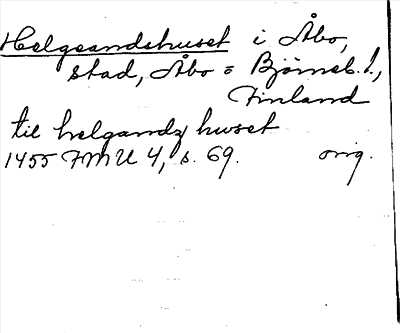 Helgeandshuset i Åbo,
stad, Åbo = Björneb. l.,
Finland
til helgandz huset
1455 FMU 4, s. 69. orig.